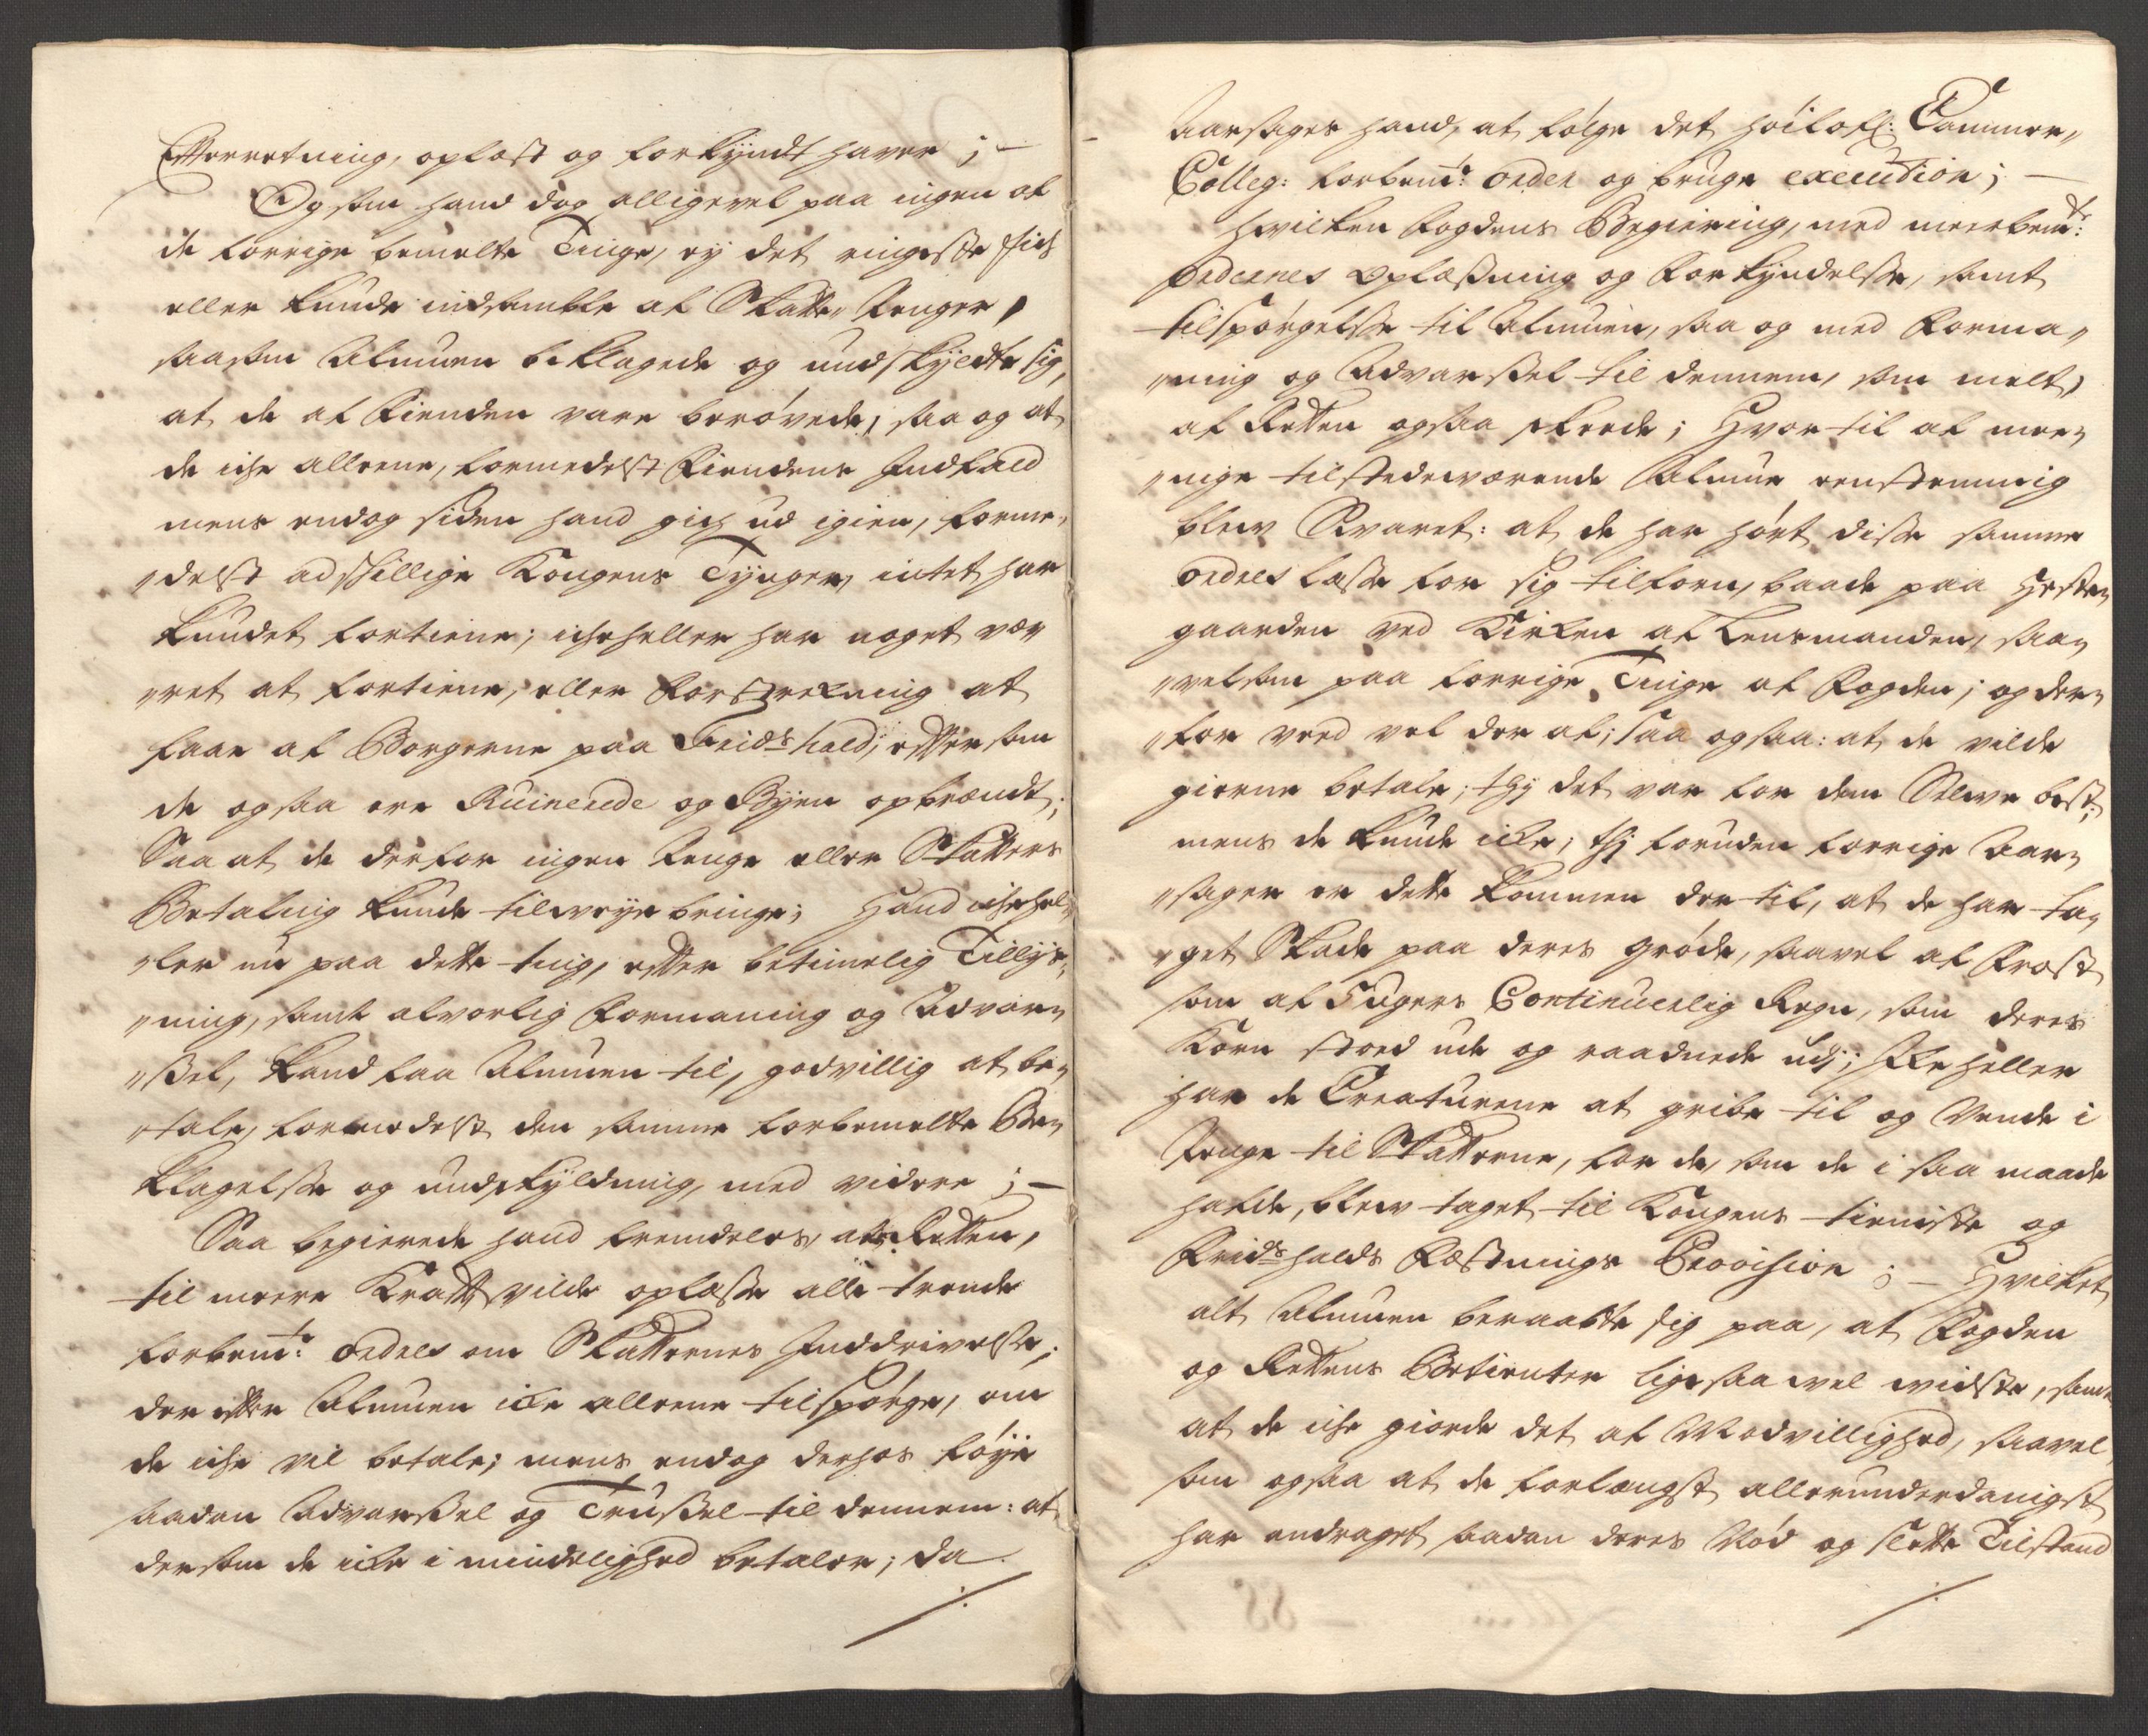 Efterretning, oplæst og forkyndt haver ;-
Og som hand dog alligevel paa ingen af
de forrige bemelte Tinge, ey det ringeste fich
eller kunde indsamble af Skatte-Penger,
saasom Almuen beklagede og undskyldte sig,
at de af Fienden vare berøvede, saa og at
de iche alleene, formedelst Fiendens Indfald
mens endog siden hand gich ud igien, forme„
„delst adskillige Kongens Tynger, intet har
kundet fortiene; icheheller har noget vær
„ret at fortiene, eller Forstrekning at
faae af Borgerne paa Fridshald, eftersom
de ogsaa ere Ruinerede og Byen opbrændt;
Saa at de derfor ingen Penge eller Skatters
Betaling kunde tilveye bringe; Hand ichehel„
„ler nu paa dette ting, efter betimelig Tillys„
„ning, samt alvorlig Formaning og Advar„
„ßel, kand faa Almuen til, godvillig at be„
„tale, formedelst den samme forbemelte Be„
klagelse og undskyldning, med videre ;-
Saa begierede hand fremdeles, at Retten,
til meere Kraft vilde oplæsse alle trende
forbemte: ordres om Skatternes Inddrivelse,
der efter Almuen icke alleene tilspørge, om
de iche vil betale; mens endog derhos føye
saadan Advarßel og Trußel til dennem: at
dersom de icke i mindelighed betaler; da
./.
Aarsages hand, at følge det høilofl: Cammer„
Colleg: forbemte: order og bruge execution; -
Hvilken Fogdens Begiering, med meerbemte:
ordernes Oplæsning og Forkyndelse, samt
tilspørgelse til Almuen, saa og med Forma„
„ning og Advarßel til dennem, som melt,
af Retten ogsaa skeede; Hvor til af mee„
„nige tilstedeværende Almue eenstemmig
blev Svaret: at de har hørt disse samme
ordres læsse for sig tilforn, baade paa Præste„
gaarden ved Kirken af Lensmanden, saa„
„velsom paa forrige Tinge af Fogden; og der„
„for veed vel der af; saa ogsaa: at de vilde
gierne betale; thj det var for dem Selve best;
mens de kunde icke; thj foruden forrige Aar„
„sager er dette kommen der til, at de har ta„
„get Skade paa deres grøde, saavel af Frost
som af Tugers Continuerlig Regn, som deres
Korn stoed ude og raadnede udj; Icke heller
har de Creaturene at gribe til og Vende i
Penge til Skatterne, for de, som de i saa maade
hafde, blev taget til Kongens tieniste og
Fridshalds Fæstnings Provision ;- Hvilket
alt Almuen beraabte sig paa, at Fogden
og Rettens Betienter ligesaa vel vidste, samt
at de iche giorde det af Modvillighed, saavel
som ogsaa at de forlængst allerunderdanigst
har andraget saadan deres Nød og slette Tilstand
./.